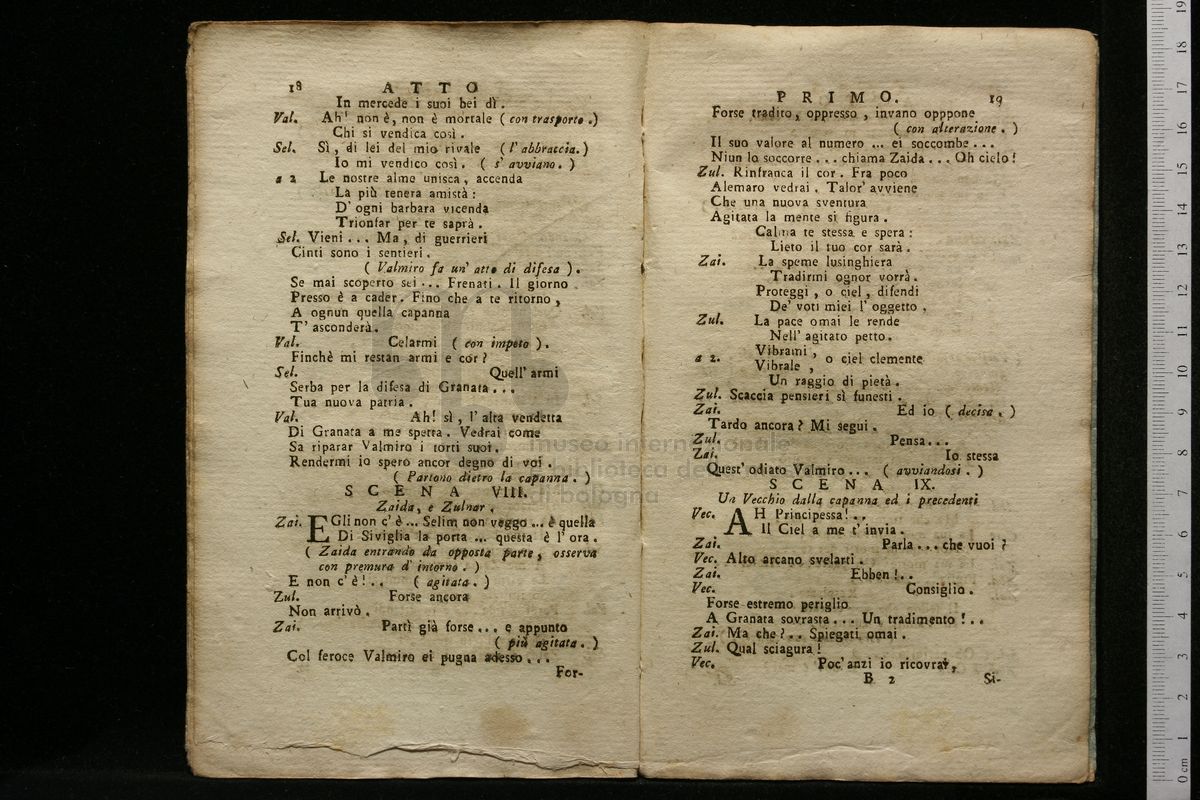 18 A T T O
In mercede i suoi bei dì.
Val. Ah! non è, non è mortale ( con trasporto .)
Chi si vendica così.
Sel. Sì, di lei del mio rivale ( l'abbraccia. )
Io mi vendico così. ( s'avviano. )
a 2 Le nostre alme unisca, accenda
La più tenera amistà :
D'ogni barbara vicenda
Trionfar per te saprà.
Sel. Vieni... Ma, di guerrieri
Cinti sono i sentieri.
( Valmiro fa un' atto di difesa ).
Se mai scoperto sei... Frenati. Il giorno
Presso è a cader. Fino che a te ritorno,
A ognun quella capanna
T' asconderà.
Val. Celarmi ( con impeto ).
Finchè mi restan armi e cor?
Sel. Quell' armi
Serba per la difesa di Granata...
Tua nuova patria.
Val. Ah! sì, l'alta vendetta
Di Granata a me spetta. Vedrai come
Sa riparar Valmiro i torti suoi.
Rendermi io spero ancor degno di voi.
( Partono dietro la capanna. )
S C E N A VIII.
Zaida, e Zulnar.
Zai. EGli non c'è... Selim non veggo... è quella
Di Siviglia la porta ... questa è l'ora.
( Zaida entrando da opposta parte, osserva
con premura d'intorno. )
E non c'è!.. ( agitata. )
Zul. Forse ancora
Non arrivò.
Zai. Partì già forse... e appunto
( più agitata. )
Col feroce Valmiro ei pugna adesso...
For-
P R I M O. 19
Forse tradito, oppresso, invano opppone
( con alterazione. )
Il suo valore al numero ... ei soccombe...
Niun lo soccorre... chiama Zaida... Oh cielo!
Zul. Rinfranca il cor. Fra poco
Alemaro vedrai. Talor' avviene
Che una nuova sventura
Agitata la mente si figura.
Calma te stessa e spera :
Lieto il tuo cor sarà.
Zai. La speme lusinghiera
Tradirmi ognor vorrà.
Proteggi, o ciel, difendi
De' voti miei l'oggetto.
Zul. La pace omai le rende
Nell' agitato petto.
a 2. Vibrami, o ciel clemente
Vibrale,
Un raggio di pietà.
Zul. Scaccia pensieri sì funesti.
Zai. Ed io ( decisa. )
Tardo ancora? Mi segui.
Zul. Pensa...
Zai. Io stessa
Quest' odiato Valmiro... ( avviandosi. )
S C E N A IX.
Un Vecchio dalla capanna ed i precedenti
Vec. AH Principessa!..
Il Ciel a me t'invia.
Zai. Parla... che vuoi?
Vec. Alto arcano svelarti.
Zai. Ebben!..
Vec. Consiglio.
Forse estremo periglio
A Granata sovrasta... Un tradimento!..
Zai. Ma che?.. Spiegati omai.
Zul. Qual sciagura!
Vec. Poc'anzi io ricovrai,
B 2 Si-
museo internazionale
biblioteca de
di bologna
0 cm 1 2 3 4 5 6 7 8 9 10 11 12 13 14 15 16 17 18 19